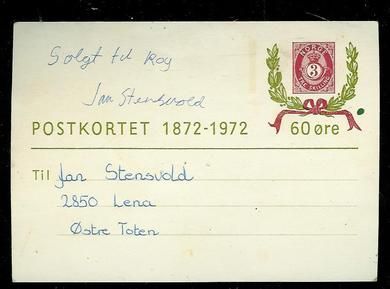 Solgt til Roy
Jan Stensvold
NORGE
3
TRE SKILLING
POSTKORTET 1872-1972 60 øre
Til Jan Stensvold
2850 Lena
Østre Toten